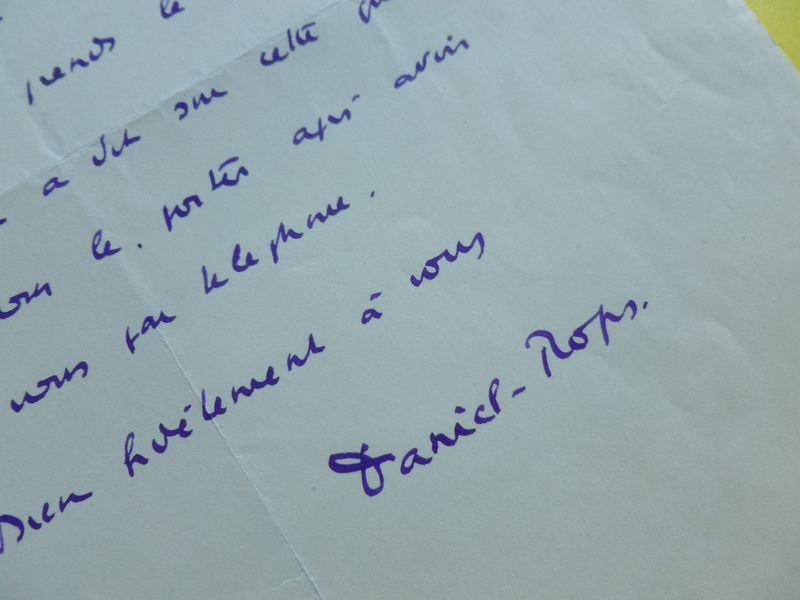 prends le
a dit sur cette
vous le porter après avoir
vous par téléphone.
Bien fidèlement à vous
Daniel-Rops.